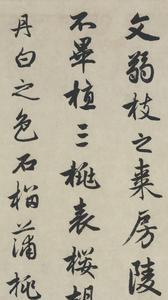 文弱枝之棗房陵
不畢植三桃表櫻胡
丹白之色石榴蒲桃